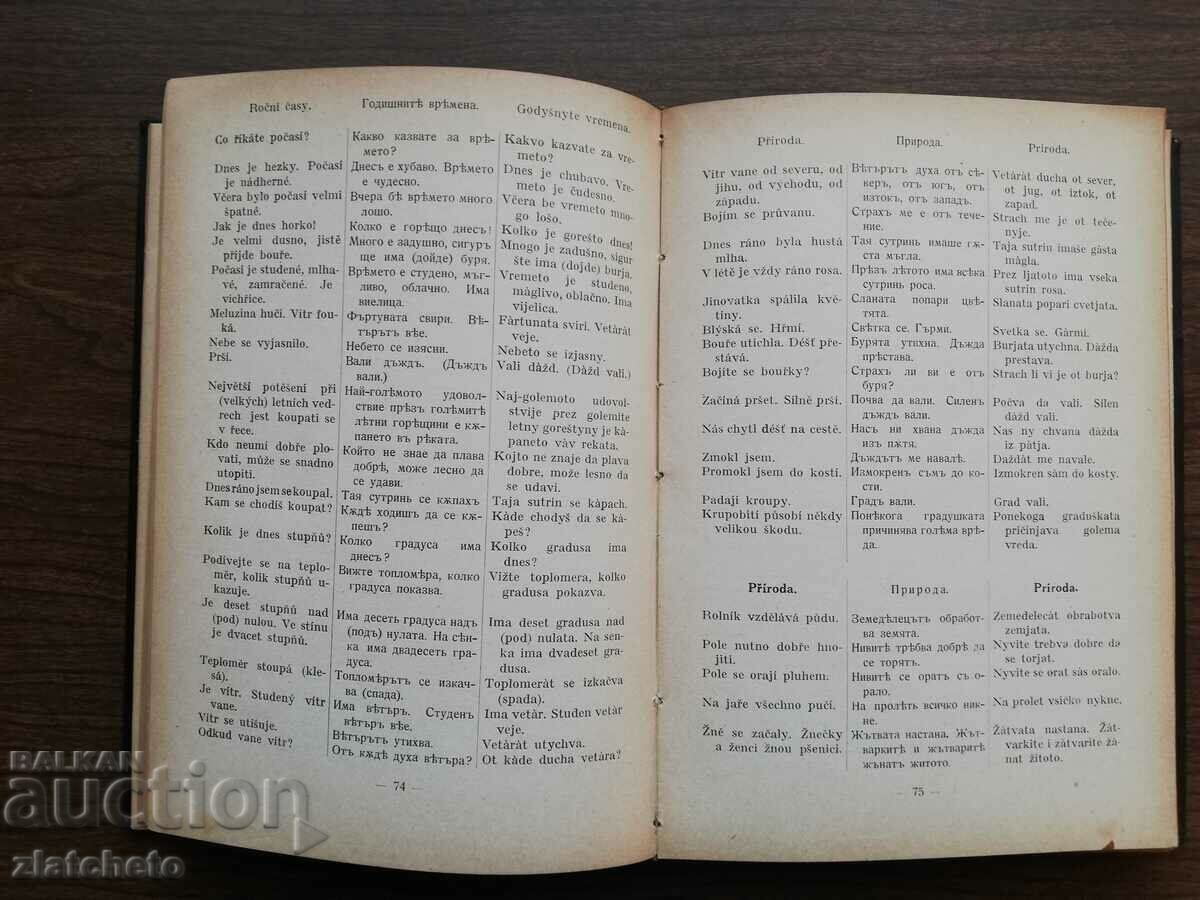 Roční časy.
Co říkáte počasí?
Dnes je hezky. Počasí
je nádherné.
Včera bylo počasí velmi
špatné.
Jak je dnes horko!
Je velmi dusno, jistě
přijde bouře.
Počasí je studené, mlha-
vé, zamračené. Je
vichřice.
Meluzina hučí. Vítr fou-
ká.
Nebe se vyjasnilo.
Prší.
Největší potěšení při
(velkých) letních ved-
rech jest koupati se
v řece.
Kdo neumí dobře plo-
vati, může se snadno
utopiti.
Dnes ráno jsem se koupal.
Kam se chodíš koupat?
Kolik je dnes stupňů?
Podívejte se na teplo-
měr, kolik stupňů u-
kazuje.
Je deset stupňů nad
(pod) nulou. Ve stínu
je dvacet stupňů.
Teploměr stoupá (kle-
sá).
Je vítr. Studený vítr
vane.
Vítr se utišuje.
Odkud vane vítr?
Годишнитѣ врѣмена.
Какво казвате за врѣ-
мето?
Днесъ е хубаво. Врѣмето
е чудесно.
Вчера бѣ врѣмето много
лошо.
Колко е горѣщо днесъ!
Много е задушно, сигуръ
ще има (дойде) буря.
Врѣмето е студено, мъг-
ливо, облачно. Има
виелица.
Фъртуната свири. Вѣ-
търътъ вѣе.
Небето се изясни.
Вали дъждъ. (Дъждъ
вали.)
Най-голѣмото удовол-
ствие прѣзъ голѣмитѣ
лѣтни горѣщини е кѫ-
пането въ рѣката.
Който не знае да плава
добрѣ, може лесно да
се удави.
Тая сутринь се кѫпахъ.
Кѫдѣ ходишъ да се кѫ-
пешъ?
Колко градуса има
днесъ?
Вижте топломѣра, колко
градуса показва.
Има десеть градуса надъ
(подъ) нулата. На сѣн-
ка има двадесеть гра-
дуса.
Топломѣрътъ се изкач-
ва (спада).
Има вѣтъръ. Студенъ
вѣтъръ вѣе.
Вѣтърътъ утихва.
Отъ кѫдѣ духа вѣтъра?
Godyšnyte vremena.
Kakvo kazvate za vre-
meto?
Dnes je chubavo. Vre-
meto je čudesno.
Včera be vremeto mno-
go lošo.
Kolko je gorešto dnes!
Mnogo je zadušno, sigur
šte ima (dojde) burja.
Vremeto je studeno,
màglivo, oblačno. Ima
vijelica.
Fàrtunata svirí. Vetàràt
veje.
Nebeto se izjasny.
Vali dàžd. (Dàžd vali.)
Naj-golemoto udovol-
stvije prez golemite
letny goreštyny je kà-
paneto vàv rekata.
Kojto ne znaje da plava
dobre, može lesno da
se udaví.
Taja sutrin se kàpach.
Kàde chodyš da se kà-
peš?
Kolko gradusa ima
dnes?
Vižte toplomera, kolko
gradusa pokazva.
Ima deset gradusa nad
(pod) nulata. Na sen-
ka ima dvadeset gra-
dusa.
Toplomeràt se izkačva
(spada).
Ima vetàr. Studen vetàr
veje.
Vetàràt utychva.
Ot kàde ducha vetàra?
— 74 —
Příroda.
Vítr vane od severu, od
jihu, od východu, od
západu.
Bojím se průvanu.
Dnes ráno byla hustá
mlha.
V létě je vždy ráno rosa.
Jinovatka spálila kvě-
tiny.
Blýská se. Hřmí.
Bouře utichla. Déšť pře-
stává.
Bojíte se bouřky?
Začíná pršet. Silně prší.
Nás chytl déšť na cestě.
Zmokl jsem.
Promokl jsem do kosti.
Padají kroupy.
Krupobití působí někdy
velikou škodu.
Příroda.
Rolník vzdělává půdu.
Pole nutno dobře hno-
jiti.
Pole se orají pluhem.
Na jaře všechno pučí.
Žně se začaly. Žnečky
a ženci žnou pšenici.
Природа.
Вѣтърътъ духа отъ сѣ-
веръ, отъ югъ, отъ
изтокъ, отъ западъ.
Страхъ ме е отъ тече-
ние.
Тая сутринь имаше гѫ-
ста мъгла.
Прѣзъ лѣтото има всѣка
сутринь роса.
Сланата попари цвѣ-
тята.
Свѣтка се. Гърми.
Бурята утихна. Дъжда
прѣстава.
Страхъ ли ви е отъ
буря?
Почва да вали. Силенъ
дъждъ вали.
Насъ ни хвана дъжда
изъ пѫтя.
Дъждътъ ме навалѣ.
Измокренъ съмъ до ко-
сти.
Градъ вали.
Понѣкога градушката
причинява голѣма врѣ-
да.
Природа.
Земедѣлецътъ обработ-
ва земята.
Нивитѣ трѣбва добрѣ да
се торятъ.
Нивитѣ се оратъ съ
орало.
На пролѣть всичко ник-
не.
Жътвата настана. Жът-
варкитѣ и жътваритѣ
жънатъ житото.
Príroda.
Vetàràt ducha ot sever,
ot jug, ot iztok, ot
zapad.
Strach me je ot teče-
nyje.
Taja sutrin imaše gàsta
màgla.
Prez ljatoto ima vseka
sutrin rosa.
Slanata popari cvetjata.
Svetka se. Gàrmi.
Burjata utychna. Dàžda
prestava.
Strach li vi je ot burja?
Počva da vali. Silen
dàžd vali.
Nas ny chvana dàžda
iz pàtja.
Daždàt me navale.
Izmokren sàm do kosty.
Grad vali.
Ponekoga graduškata
pričinjava golema
vreda.
Príroda.
Zemedelecàt obrabotva
zemjata.
Nyvite trebva dobre da
se torjat.
Nyvite se orat sàs oralo.
Na prolet vsičko nykne.
Žàtvata nastana. Žàt-
varkite i žàtvarite žà-
nat žitoto.
— 75 —
BALKAN
auction
zlatcheto